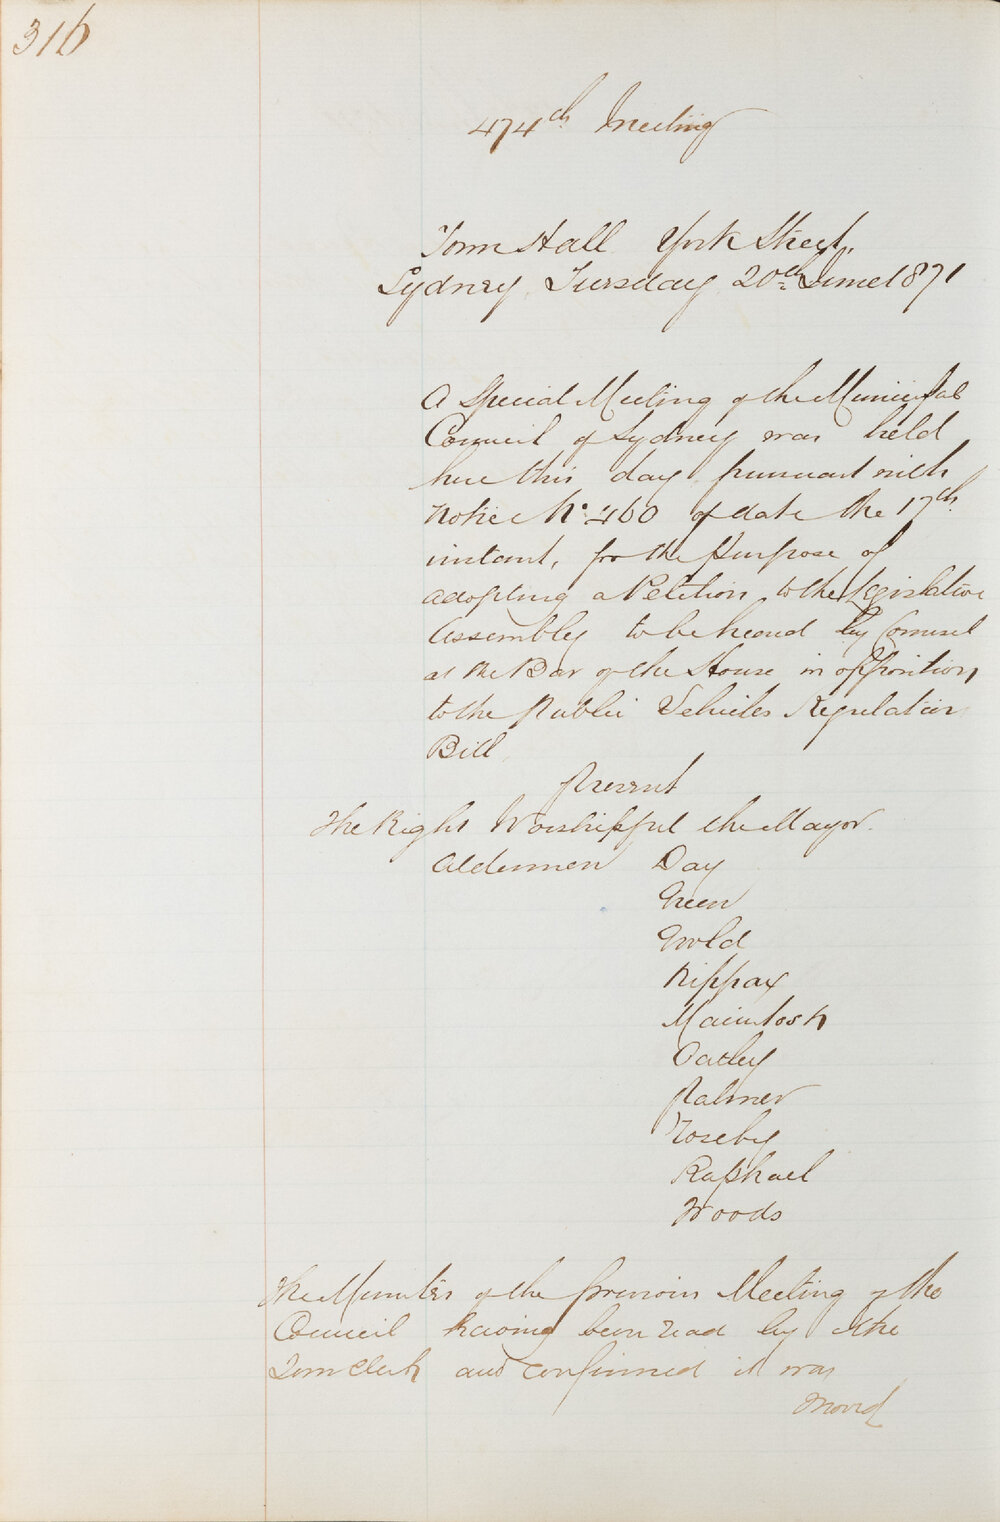 316
474th Meeting
Town Hall York Street,
Sydney, Tuesday 20th June 1871
A Special Meeting of the Municipal
Council of Sydney was held
here this day pursuant with
Notice No. 460 of date the 17th
instant, for the purpose of
adopting a Petition to the Legislative
Assembly to be heard by Counsel
at the Bar of the House in opposition
to the Public Vehicles Regulation
Bill
Present
The Right Worshipful the Mayor.
Aldermen Day
Green
Gold
Kippax
Macintosh
Oatley
Palmer
Roseby
Raphael
Woods
The Minutes of the previous Meeting of the
Council having been read by the
Town Clerk and confirmed it was
Moved